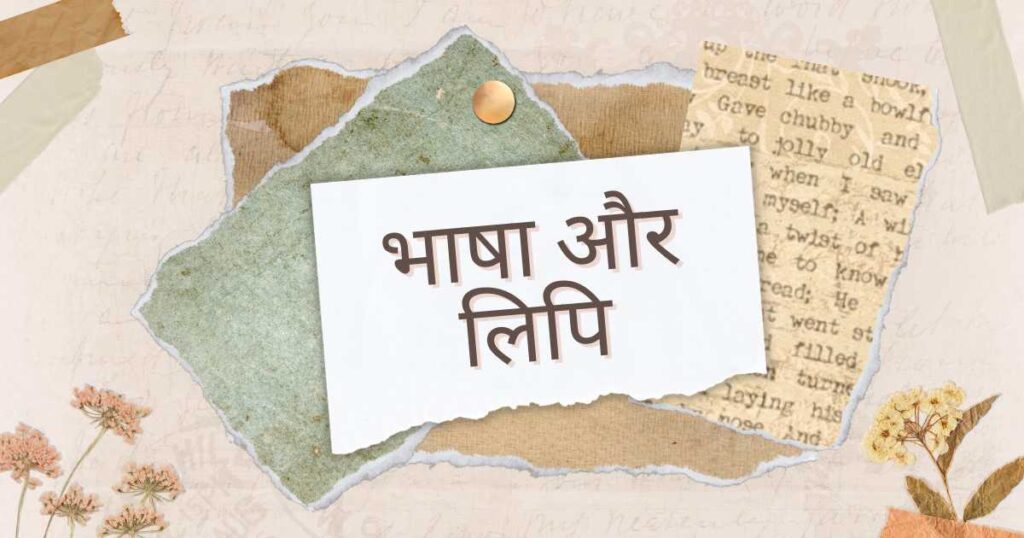 भाषा और
लिपि
up the that
breast like a bowlf
Gave chubby and
to jolly old el
when I saw
myself; A wi
a twist of
me to know
read; He
went st
filled
turne
laying his
nose And